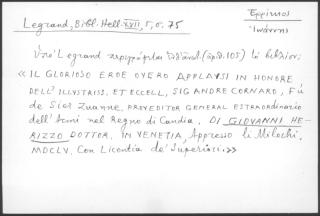 Legrand, Bibl. Hell. XVII, 5, σ. 75
Ἔρριτσος
Ἰωάννης
Ὑπὸ Legrand περιγράφεται (ἀρ. 105) τὸ βιβλίον:
«IL GLORIOSO EROE OVERO APPLAUSI IN HONORE
DELL' ILLUSTRISS. ET ECCELL, SIG ANDRE CORNARO, Fú
de Sier Zuanne, PROVEDITOR GENERAL ESTRAORDINARIO
dell'Armi nel Regno di Candia. DI GIOVANNI HE-
RIZZO DOTTOR. IN VENETIA, Appresso li Milochi.
MDCLV. Con Licentia de' Superiori.»